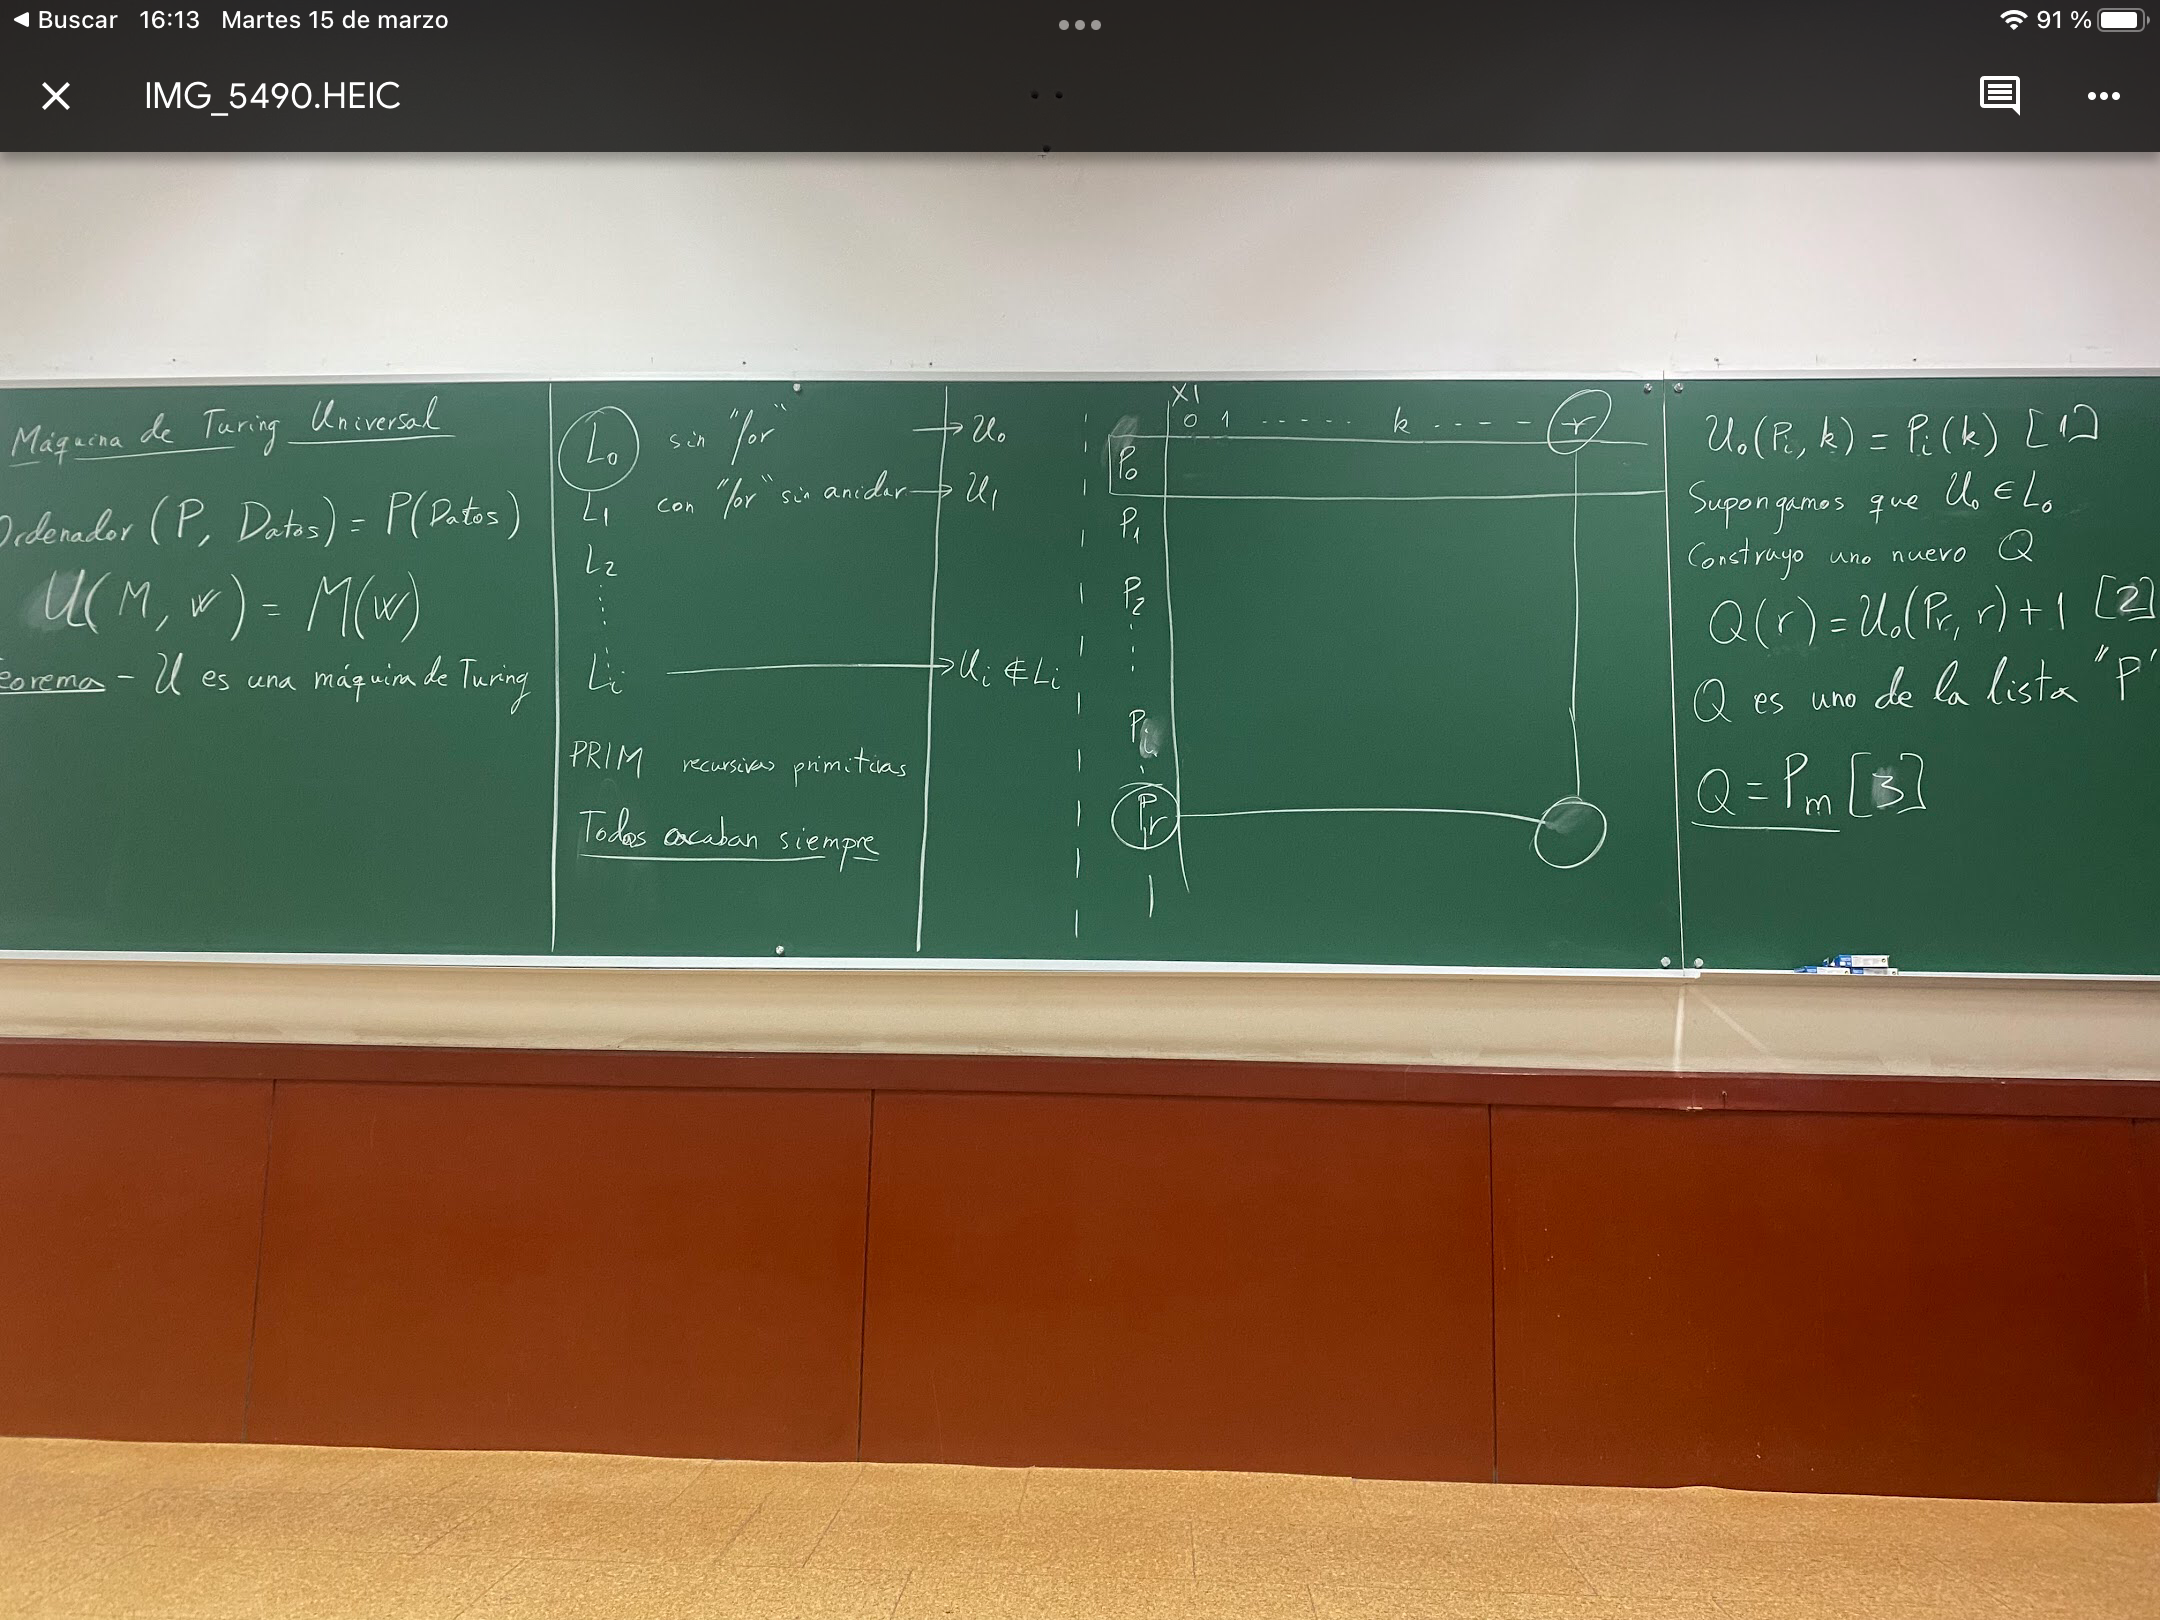 Buscar 16:13 Martes 15 de marzo 91 %
IMG_5490.HEIC
Máquina de Turing Universal
Ordenador (P, Datos) = P(Datos)
U(M, w) = M(w)
eorema - U es una máquina de Turing
L₀ sin "for" → U₀
L₁ con "for" sin anidar → U₁
L₂
⋮
Lᵢ → Uᵢ ∉ Lᵢ
PRIM recursivas primitivas
Todos acaban siempre
X1
0 1 ...... k .... - r
P₀
P₁
P₂
⋮
Pᵢ
Pᵣ
U₀(Pᵢ, k) = Pᵢ(k) [1]
Supongamos que U₀ ∈ L₀
Construyo uno nuevo Q
Q(r) = U₀(Pᵣ, r) + 1 [2]
Q es uno de la lista "P"
Q = Pₘ [3]